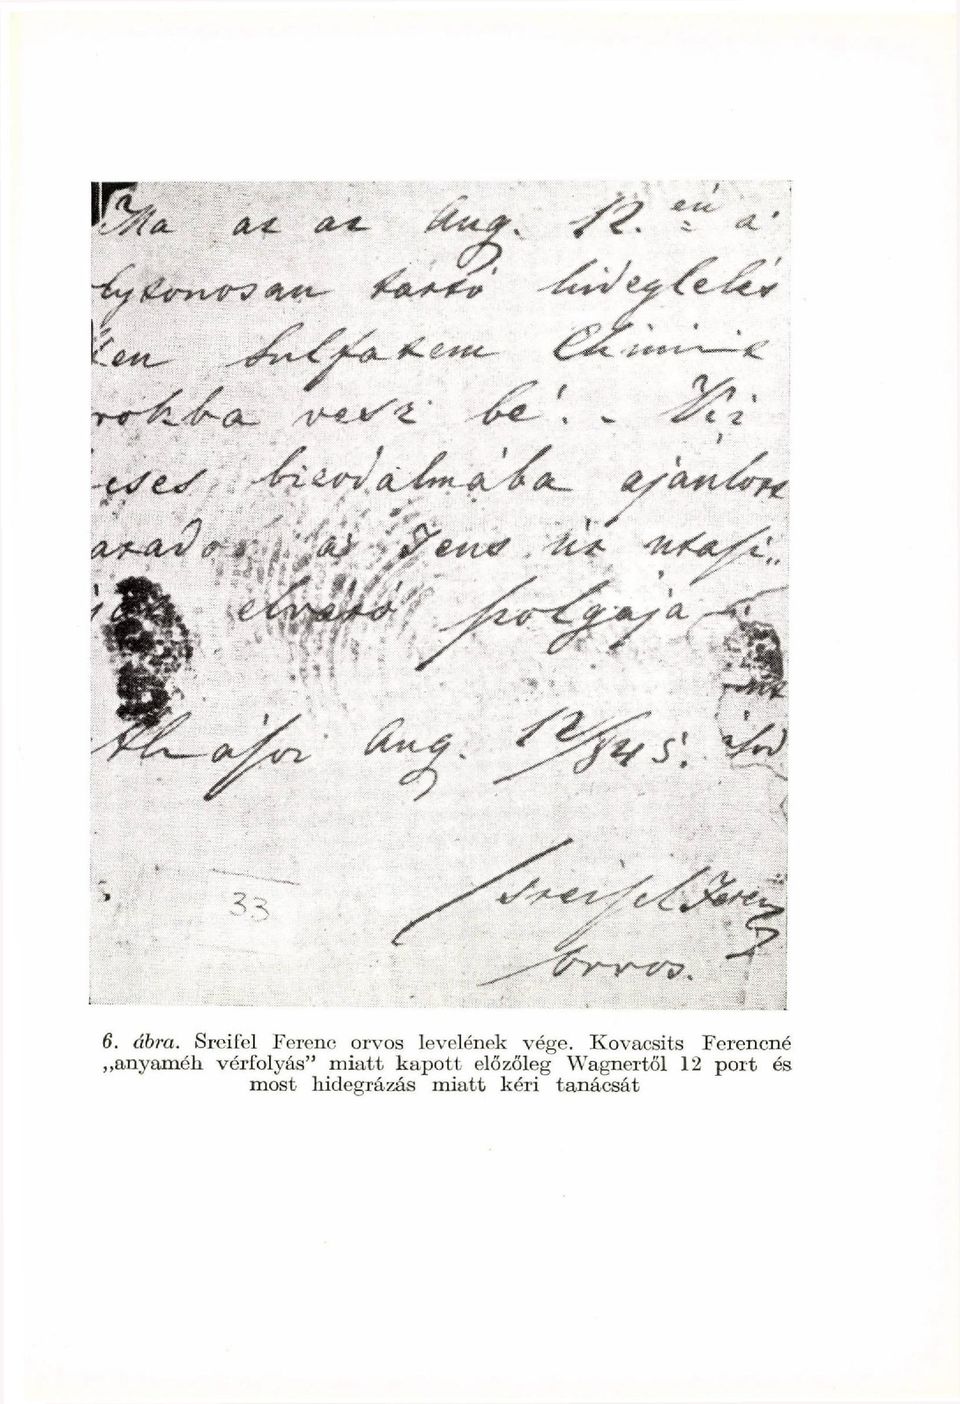 Ma az az Aug. 12. én a'
folytonosan tartó hideglelés
Sulfatem Chinin
rokba vesz be'. - Viz
bizodalmába ajánlott
a' Tens úr utasi„
elvető polgája
Aug. 12/845.
33
Sreifel Ferenc
orvos.
6. ábra. Sreifel Ferenc orvos levelének vége. Kovacsits Ferencné
„anyaméh vérfolyás” miatt kapott előzőleg Wagnertől 12 port és
most hidegrázás miatt kéri tanácsát